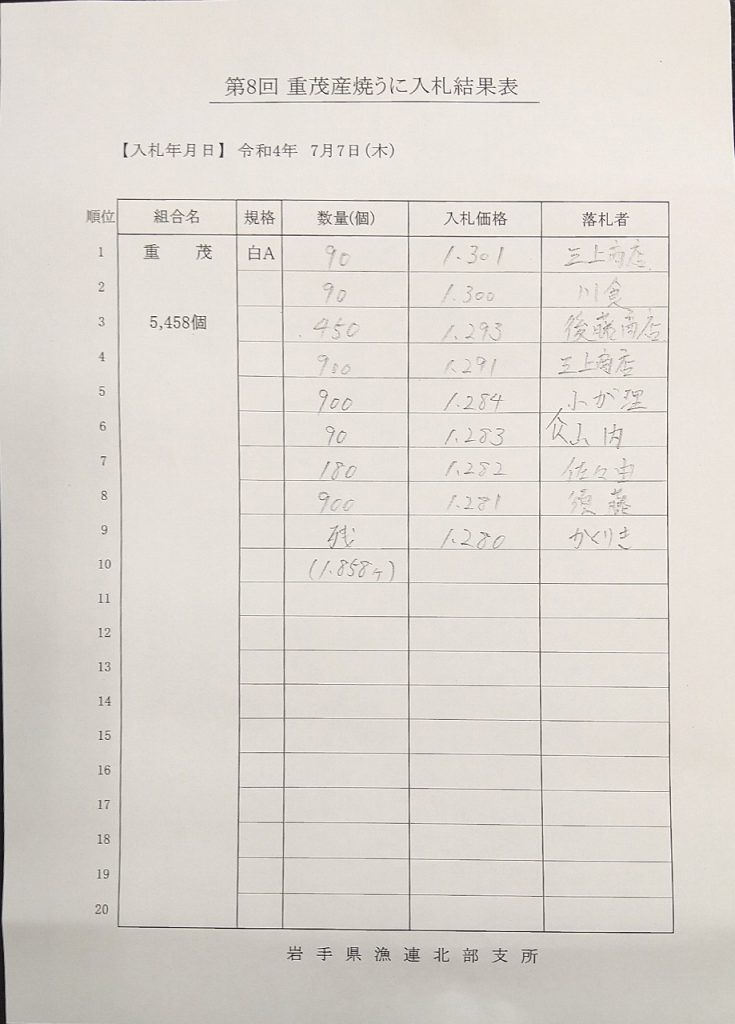 第8回 重茂産焼うに入札結果表
【入札年月日】 令和4年 7月7日(木)
順位 組合名 規格 数量(個) 入札価格 落札者
1 重 茂 白A 90 1.301 三上商店
2 90 1.300 川食
3 5,458個 450 1.293 後藤商店
4 900 1.291 三上商店
5 900 1.284 小が理
6 90 1.283 山内
7 180 1.282 佐々由
8 900 1.281 須藤
9 残 1.280 かくりき
10 (1.858ヶ)
11
12
13
14
15
16
17
18
19
20
岩手県漁連北部支所